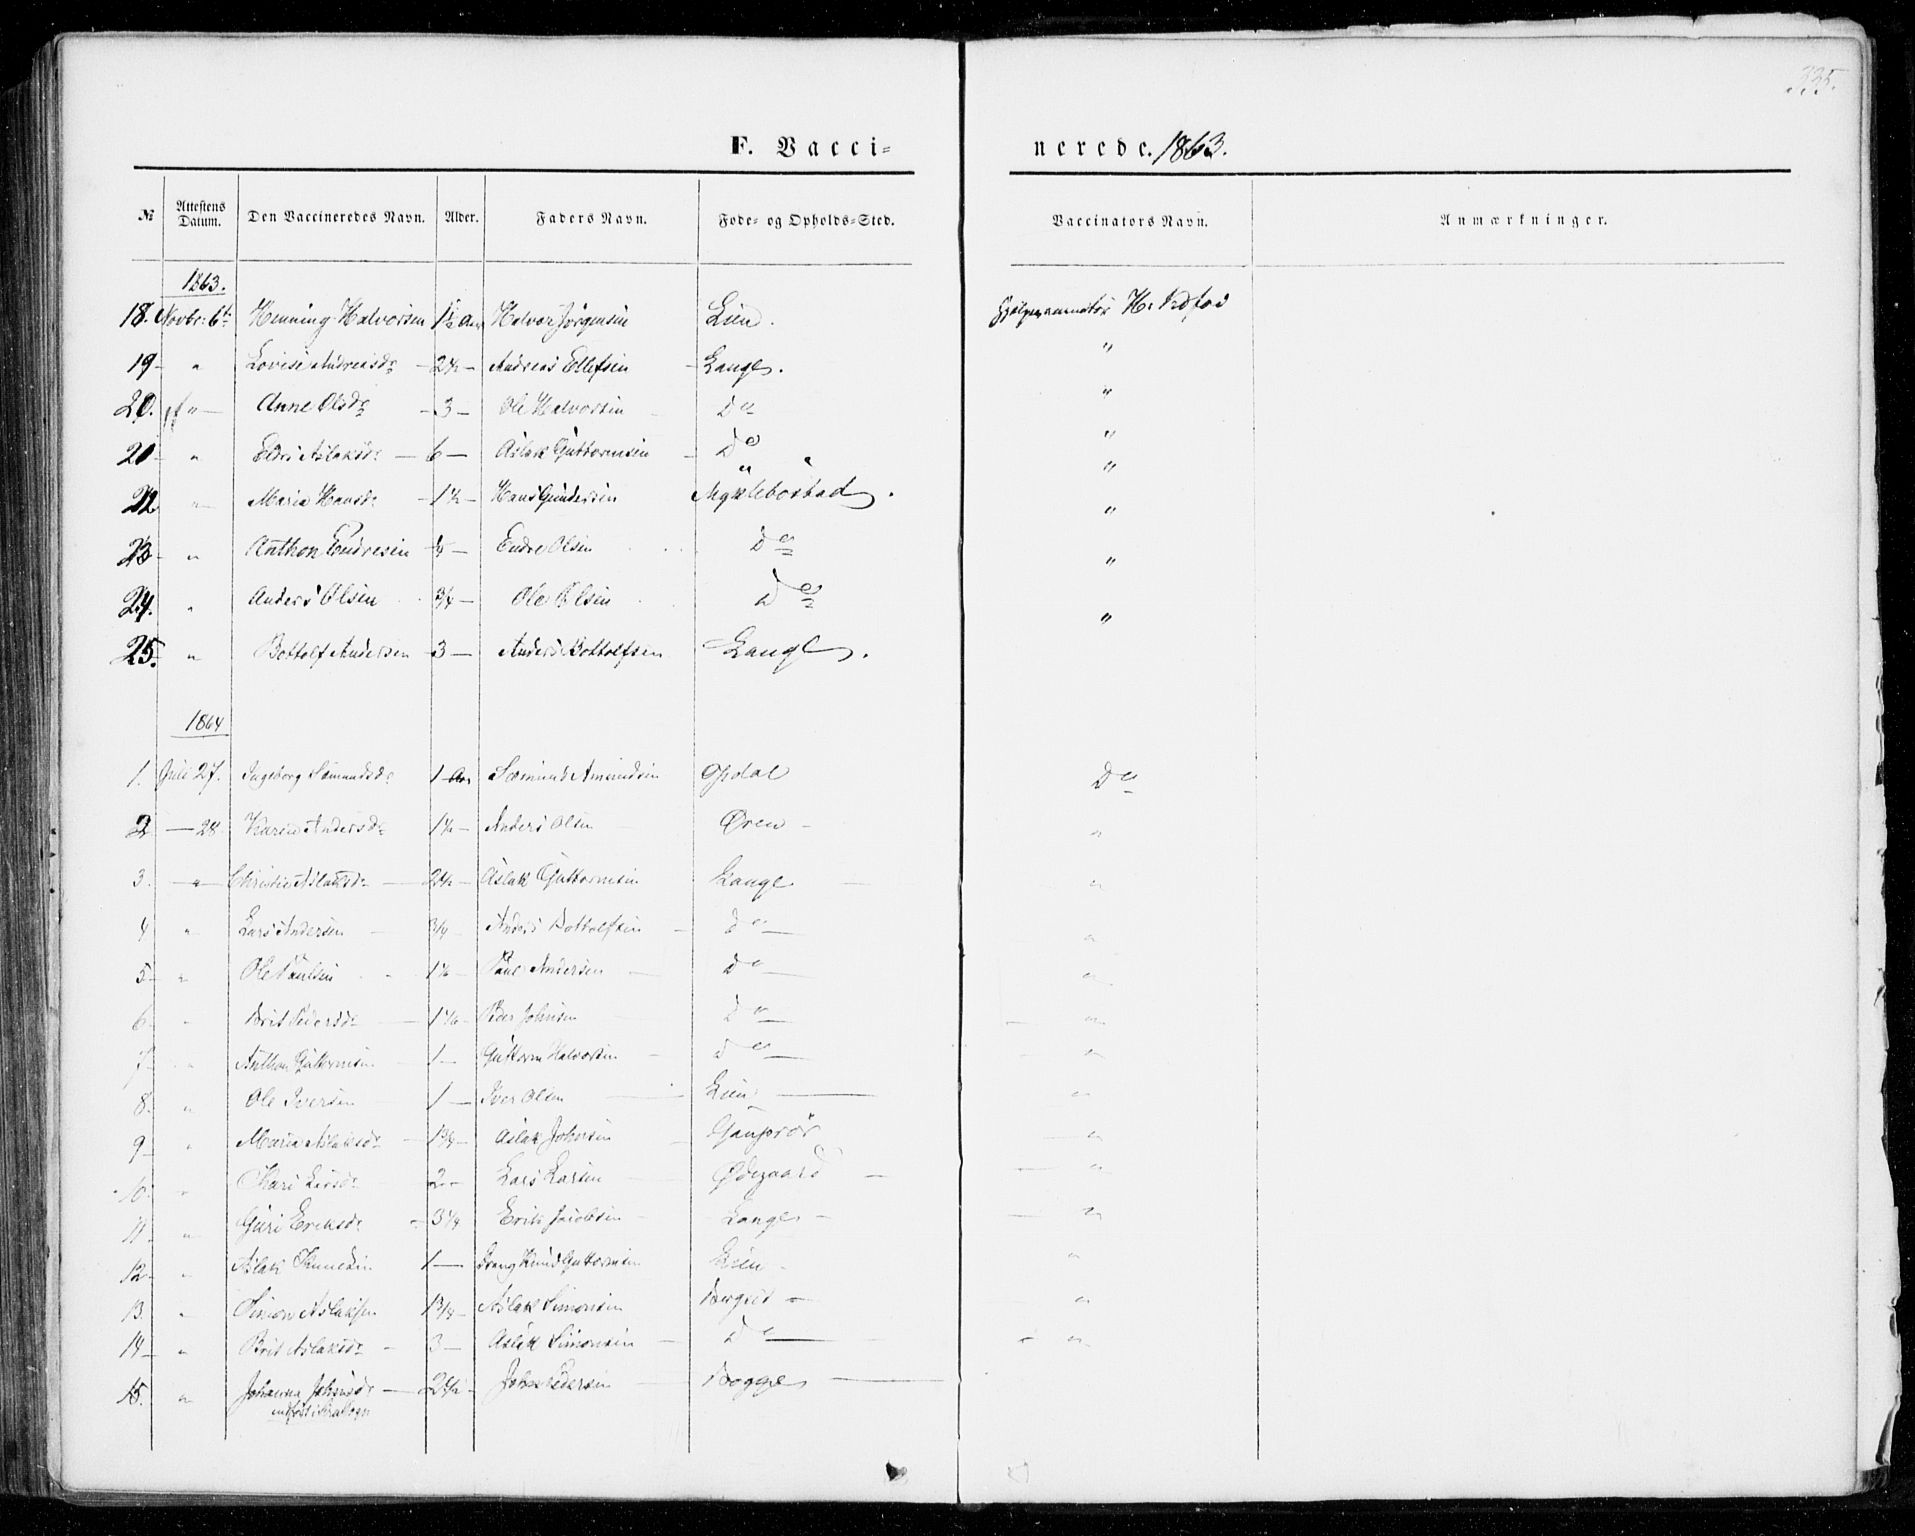 335.
F. Vacci- nerede. 1863.
№ Attestens Datum. Den Vaccineredes Navn. Alder. Faders Navn. Føde- og Opholds-Sted. Vaccinators Navn. Anmærkninger.
1863.
18. Novbr: 6t Henning Halvorsen 1½ Aar Halvor Jørgensen Lien. Hjelpevaccinatør H.
19 " Lovise Andreasdr 2½ Andreas Ellefsen Lange. "
20. " Anne Olsdr 3 Ole Halvorsen Do "
20 " Eldri Aslaksdr 6 Aslak Guttormsen Do "
22 " Maria Hansdr 1½ Hans Gundersen Myklebostad. "
23 " Anthon Endresen Endre Olsen Do "
24. " Anders Olsen 3/4 Ole Olsen Do "
25. " Bottolf Andersen 3 Anders Bottolfsen Lange. "
1864
1. Juli 27. Ingeborg Sæmundsdr 1 Aar Sæmund Amundsen Opdal Do
2 — 28 Karen Andersdr 1½ Anders Olsen Øren "
3. " Christie Aslaksdr 2½ Aslak Guttormsen Lange "
4 " Lars Andersen 3/4 Anders Bottolfsen Do "
5 " Ole Paulsen 1½ Paul Andersen Do "
6 " Brit Pedersdr Peder Johnsen Do "
7 " Anthon Guttormsen 1 Guttorm Halvorsen Do "
8. " Ole Iversen 1 Iver Olsen Lien "
9 " Maria Aslaksdr 1¾ Aslak Johnsen Gangrør "
10. " Kari Larsdr 2 Lars Larsen Ødegaard "
11 " Guri Eriksdr 3¼ Erik Jacobsen Lange "
12 " Aslak Knudsen 1 Knud Guttormsen Lien "
13. " Simon Aslaksen 1¾ Aslak Simonsen Bergset "
14 " Brit Aslaksdr 3 Aslak Simonsen Do "
15. " Johanna Johnsdr 2½ John Pedersen Bogge